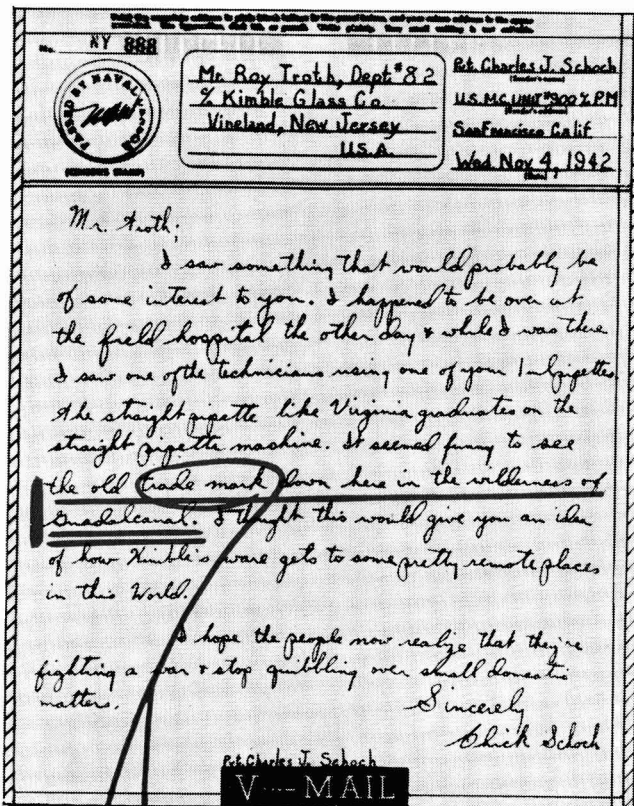 No.
NY 888
PASSED BY NAVAL CENSOR
(CENSOR'S STAMP)
Mr. Roy Troth, Dept #82
% Kimble Glass Co.
Vineland, New Jersey
U.S.A.
Pvt. Charles J. Schoch
(Sender's name)
U.S.M.C. UNIT #300 % P.M
(Sender's address)
San Francisco Calif
Wed Nov 4, 1942
(Date)
Mr. Troth;
I saw something that would probably be
of some interest to you. I happened to be over at
the field hospital the other day & while I was there
I saw one of the technicians using one of your 1 ml pipettes.
The straight pipette like Virginia graduates on the
straight pipette machine. It seemed funny to see
the old trade mark down here in the wilderness of
Guadalcanal. I thught this would give you an idea
of how Kimble's ware gets to some pretty remote places
in this World.
I hope the people now realize that they're
fighting a war & stop quibbling over small domestic
matters.
Sincerely
Chick Schoch
Pvt. Charles J. Schoch
V---MAIL